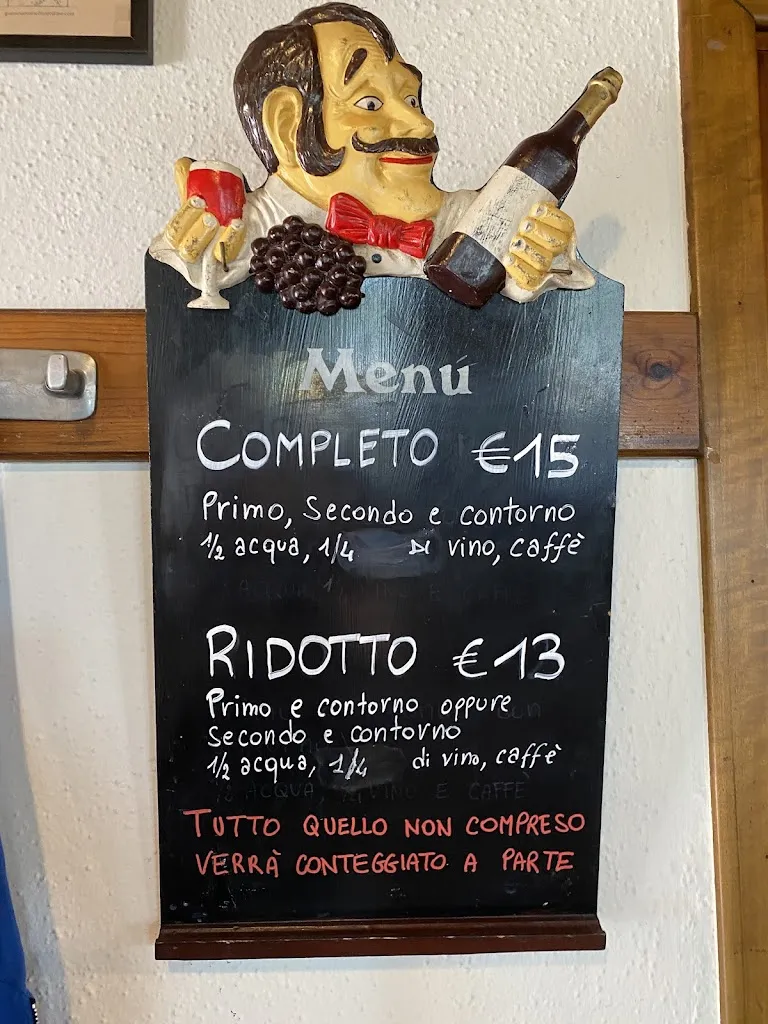 Menú
COMPLETO €15
Primo, Secondo e contorno
1/2 acqua, 1/4 DI vino, caffè
RIDOTTO €13
Primo e contorno oppure
Secondo e contorno
1/2 acqua, 1/4 di vino, caffè
TUTTO QUELLO NON COMPRESO
VERRÀ CONTEGGIATO A PARTE